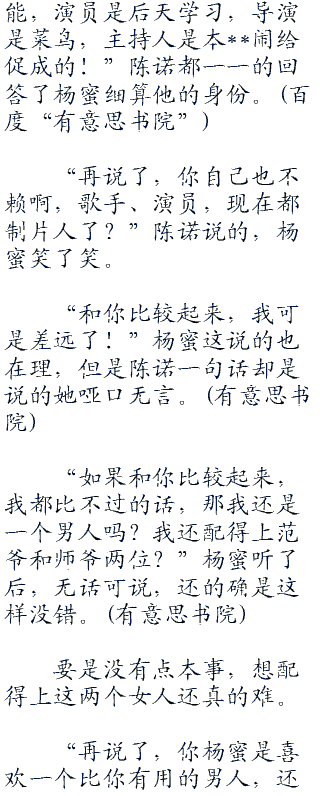 能，演员是后天学习，导演
是菜鸟，主持人是本**闹给
促成的！”陈诺都一一的回
答了杨蜜细算他的身份。(百
度“有意思书院”)
“再说了，你自己也不
赖啊，歌手、演员，现在都
制片人了？”陈诺说的，杨
蜜笑了笑。
“和你比较起来，我可
是差远了！”杨蜜这说的也
在理，但是陈诺一句话却是
说的她哑口无言。(有意思书
院)
“如果和你比较起来，
我都比不过的话，那我还是
一个男人吗？我还配得上范
爷和师爷两位？”杨蜜听了
后，无话可说，还的确是这
样没错。(有意思书院)
要是没有点本事，想配
得上这两个女人还真的难。
“再说了，你杨蜜是喜
欢一个比你有用的男人，还